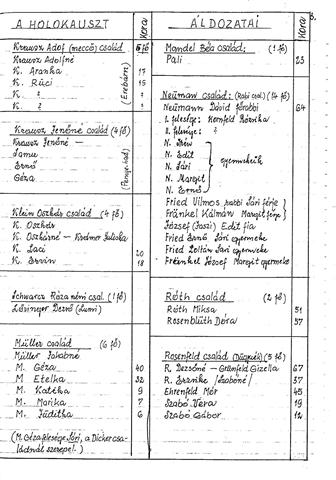 A HOLOKAUSZT
Kora
Krausz Adolf (meccő) család 5 fő
Krausz Adolfné
K. Aranka 17
K. Rúci 15
K. ?
K. ?
Krausz Jenőné család (4 fő)
Krausz Jenőné —
Samu
Ernő
Géza
Klein Oszkár család (4 fő)
K. Oszkár
K. Oszkárné —
K. Laci 20
K. Ervin 18
Schwarcz Róza néni csal. (1 fő)
Lővinger Dezső (Lumi)
Müller család (6 fő)
Müller Jakabné
M. Géza 40
M Etelka 32
M. Katóka 9
M. Marika 7
M. Juditka 6
(M. Géza felesége Sári, a Dicker csa-
ládnál szerepel.)
ÁLDOZATAI
Kora
Mandel Béla család: (1 fő)
Pali 23
Neumann család: (Rabi csal.) (14 fő)
Neumann Dávid főrabbi 64
I. felesége: Kornfeld Rózsika
II. felesége: ?
N. Edit
N. Sári
N. Margit
N. Ernő
gyermekeik
Fried Vilmos rabbi Sári férje
Fränkel Kálmán Margit férje
József (Joszi) Edit fia
Fried Ernő Sári gyermeke
Fried Zoltán Sári gyermeke
Fränkel József Margit gyermeke
Róth család (2 fő)
Róth Miksa 51
Rosenblüth Dóra 37
Rosenfeld család (5 fő)
R. Dezsőné — Grünfeld Gizella 67
R. Szabóné 37
Ehrenfeld Mór 45
Szabó Vera 19
Szabó Gábor 12